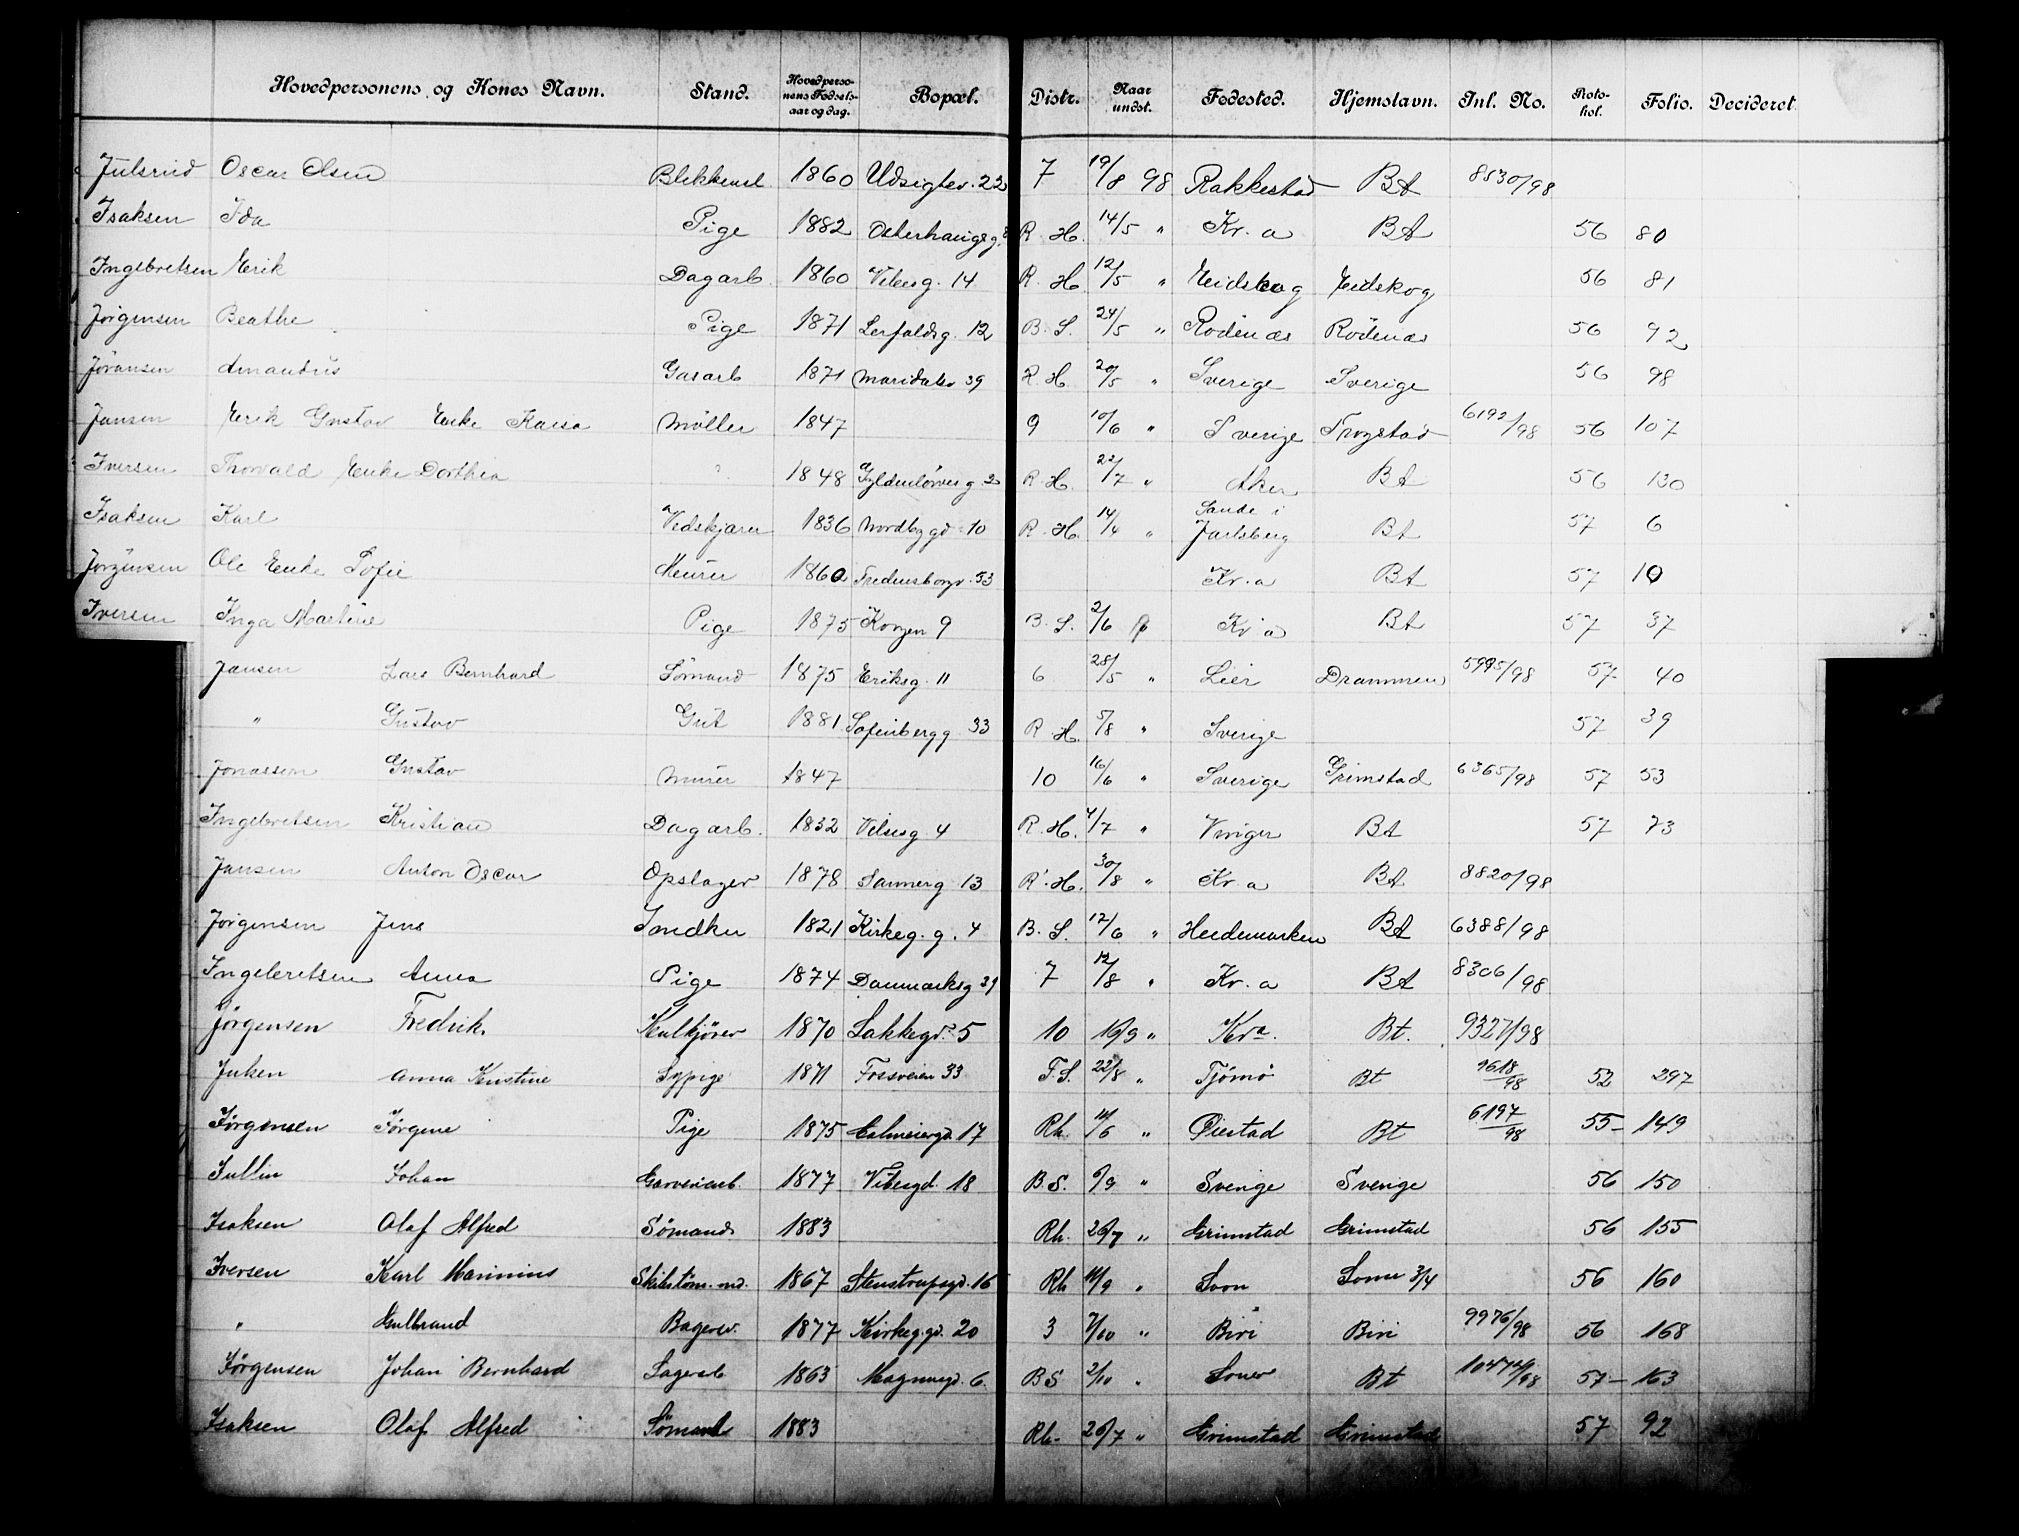 Hovedpersonens og Kones Navn. Stand. Hovedpersonens Fødselsaar og dag. Bopæl. Distr. Naar undst. Fødested. Hjemstavn. Inl. No. Protokol. Folio. Decideret.
Julsrud Oscar Olsen 1860 Udsigtsv. 22 7 19/8 98 Rakkestad Bt 8530/98
Isaksen Ida Pige 1882 Osterhausg. R. H. 14/5 " Kr. a Bt 56 80
Ingebretsen Erik Dagarb. 1860 Vibesg. 14 R. H. 12/5 " Eidskog Eidskog 56 81
Jörgensen Beathe Pige 1871 Lerfaldsg. 12 B. S. 24/5 " Rödenæs Rödenæs 56 92
Jöransen Amandus Gasarb 1871 Maridalsv 39 R. H. 20/5 " Sverige Sverige 56 98
Jansen Erik Gustav Enke Kaisa Möller 1847 9 10/6 " Sverige Trogstad 6192/98 56 107
Iversen Thorvald Enke Dorthea 1848 Gyldenlövesg 2 R. H. 22/7 " Aker Bt 56 130
Isaksen Karl Vedskjærer 1836 Nordbygd. 10 R. H. 14/4 " Sande i Jarlsberg Bt 57 6
Jörgensen Ole Enke Sofie Murer 1860 Fredensborgv. 53 Kr. a Bt 57 10
Iversen Inga Martine Pige 1875 Korgen 9 B. S. 2/6 Kr a Bt 57 37
Jansen Lars Bernhard Sömand 1875 Eriksg. 11 6 28/5 " Lier Drammen 5995/98 57 40
" Gustav Gut 1881 Sofienbergg 33 R. H. 5/8 " Sverige 57 39
Jonassen Gustav Murer 1847 10 16/6 " Sverige Grimstad 6365/98 57 53
Ingebretsen Kristian Dagarb. 1832 Vibesg 4 R. H. 4/7 " Vinger Bt 57 73
Jansen Anton Oscar Opslager 1878 Sannerg. 13 R. H. 30/8 " Kr. a Bt 8820/98
Jörgensen Jens 1821 Kirkeg. g. 4 B. S. 17/6 " Hedemarken Bt 6388/98
Ingebretsen Anna Pige 1874 Danmarksg 39 7 12/8 " Kr. a Bt 8306/98
Jörgensen Fredrik Kulkjører 1870 Lakkegd. 5 10 10/9 " Kra. Bt. 9327/98
Juken Anna Kristine Sypige 1871 Fossveien 33 F. S. 22/8 " Tjömö Bt 9618/98 52 297
Jørgensen Jørgine Pige 1875 Calmeiergd. 17 Rh. 11/6 " Øiestad Bt 6197/98 55 149
Jullin Johan Garveriarb. 1877 Vibesgd. 18 B.S. 6/9 " Sverige Sverige 56 150
Isaksen Olaf Alfred Sømand. 1883 Rh. 26/7 " Grimstad Grimstad 56 155
Iversen Karl Marinius 1867 Stenstrupsgd. 16 Rh 11/9 " Soon Soner 3/4 56 160
" Gulbrand Bagersv. 1877 Kirkeg.gd. 20 3 7/10 " Biri Biri 9976/98 56 168
Jørgensen Johan Bernhard Lagerarb 1863 Magnusgd. 6. BS 2/10 " Soner Bt 57 163
Isaksen Olaf Alfred Sømand 1883 Rh. 26/7 " Grimstad Grimstad 57 92